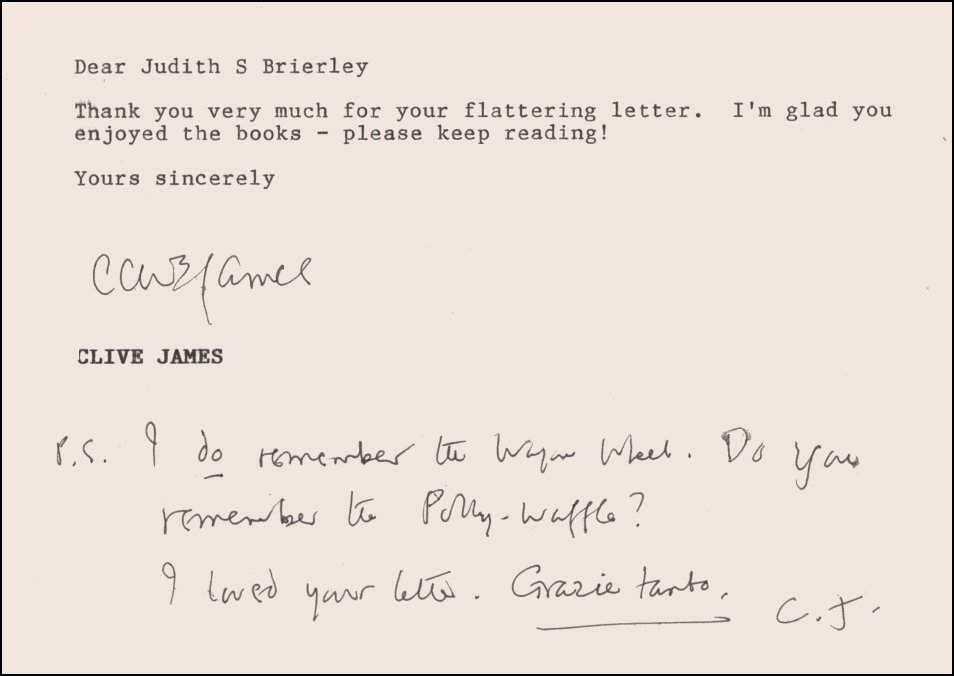 Dear Judith S Brierley
Thank you very much for your flattering letter. I'm glad you
enjoyed the books - please keep reading!
Yours sincerely
Clive James
CLIVE JAMES
P.S. I do remember the Wagon Wheel. Do you
remember the Polly-waffle?
I loved your letter. Grazie tanto.
C.J.